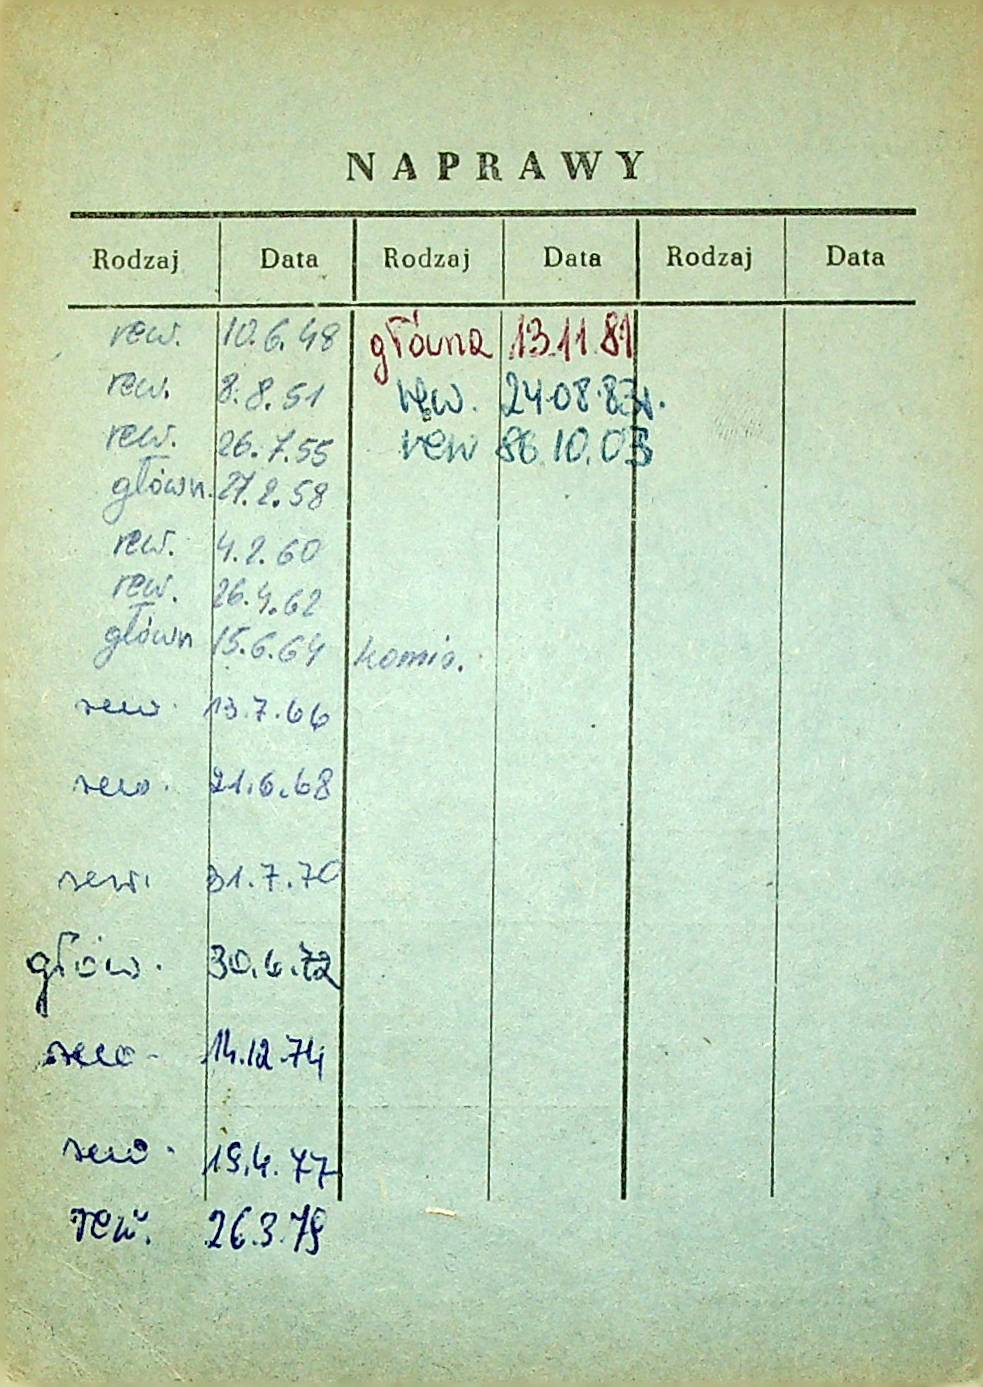 NAPRAWY
Rodzaj Data Rodzaj Data Rodzaj Data
rew. 10.6.48 główna 13.11.81
rew. 8.8.51 rew. 24.08.83r.
rew. 26.7.55 rew 86.10.03
główn. 27.2.58
rew. 4.2.60
rew. 26.4.62
główn 15.6.64 komis.
rew. 13.7.66
rew. 21.6.68
rew. 31.7.70
głów. 30.6.72
rew. 14.12.74
rew. 19.4.77
rew. 26.3.79